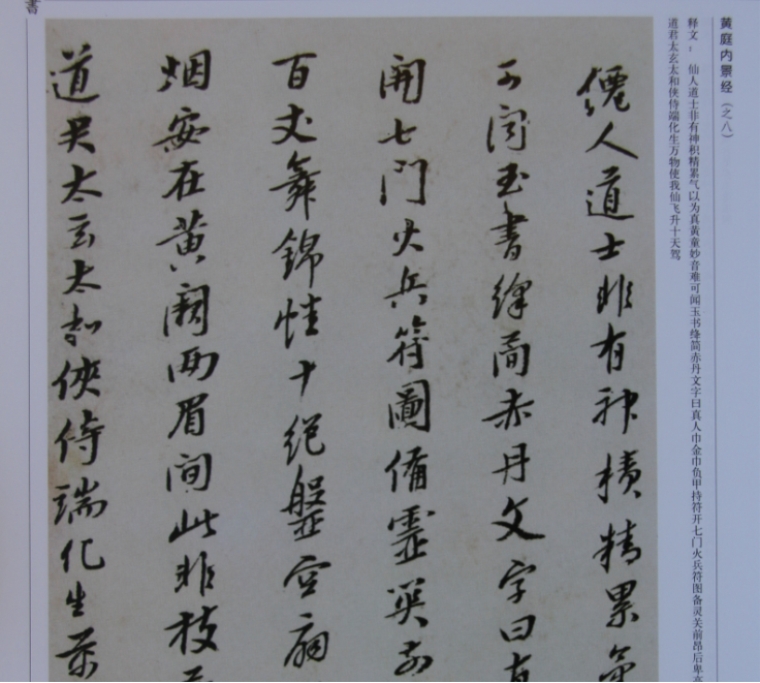 黄庭内景经（之八）
释文：仙人道士非有神积精累气以为真黄童妙音难可闻玉书绛简赤丹文字曰真人巾金巾负甲持符开七门火兵符图备灵关前昂后卑
道君太玄太和侠侍端化生万物使我仙飞升十天驾
僊人道士非有神積精累氣
可闻玉書絳蕳赤丹文字曰真
開七門火兵符圖備靈關前
百丈舞錦幡十絕盤空扇
烟安在黄闕兩眉間此非枝
道君太玄太和俠侍端化生萬
書